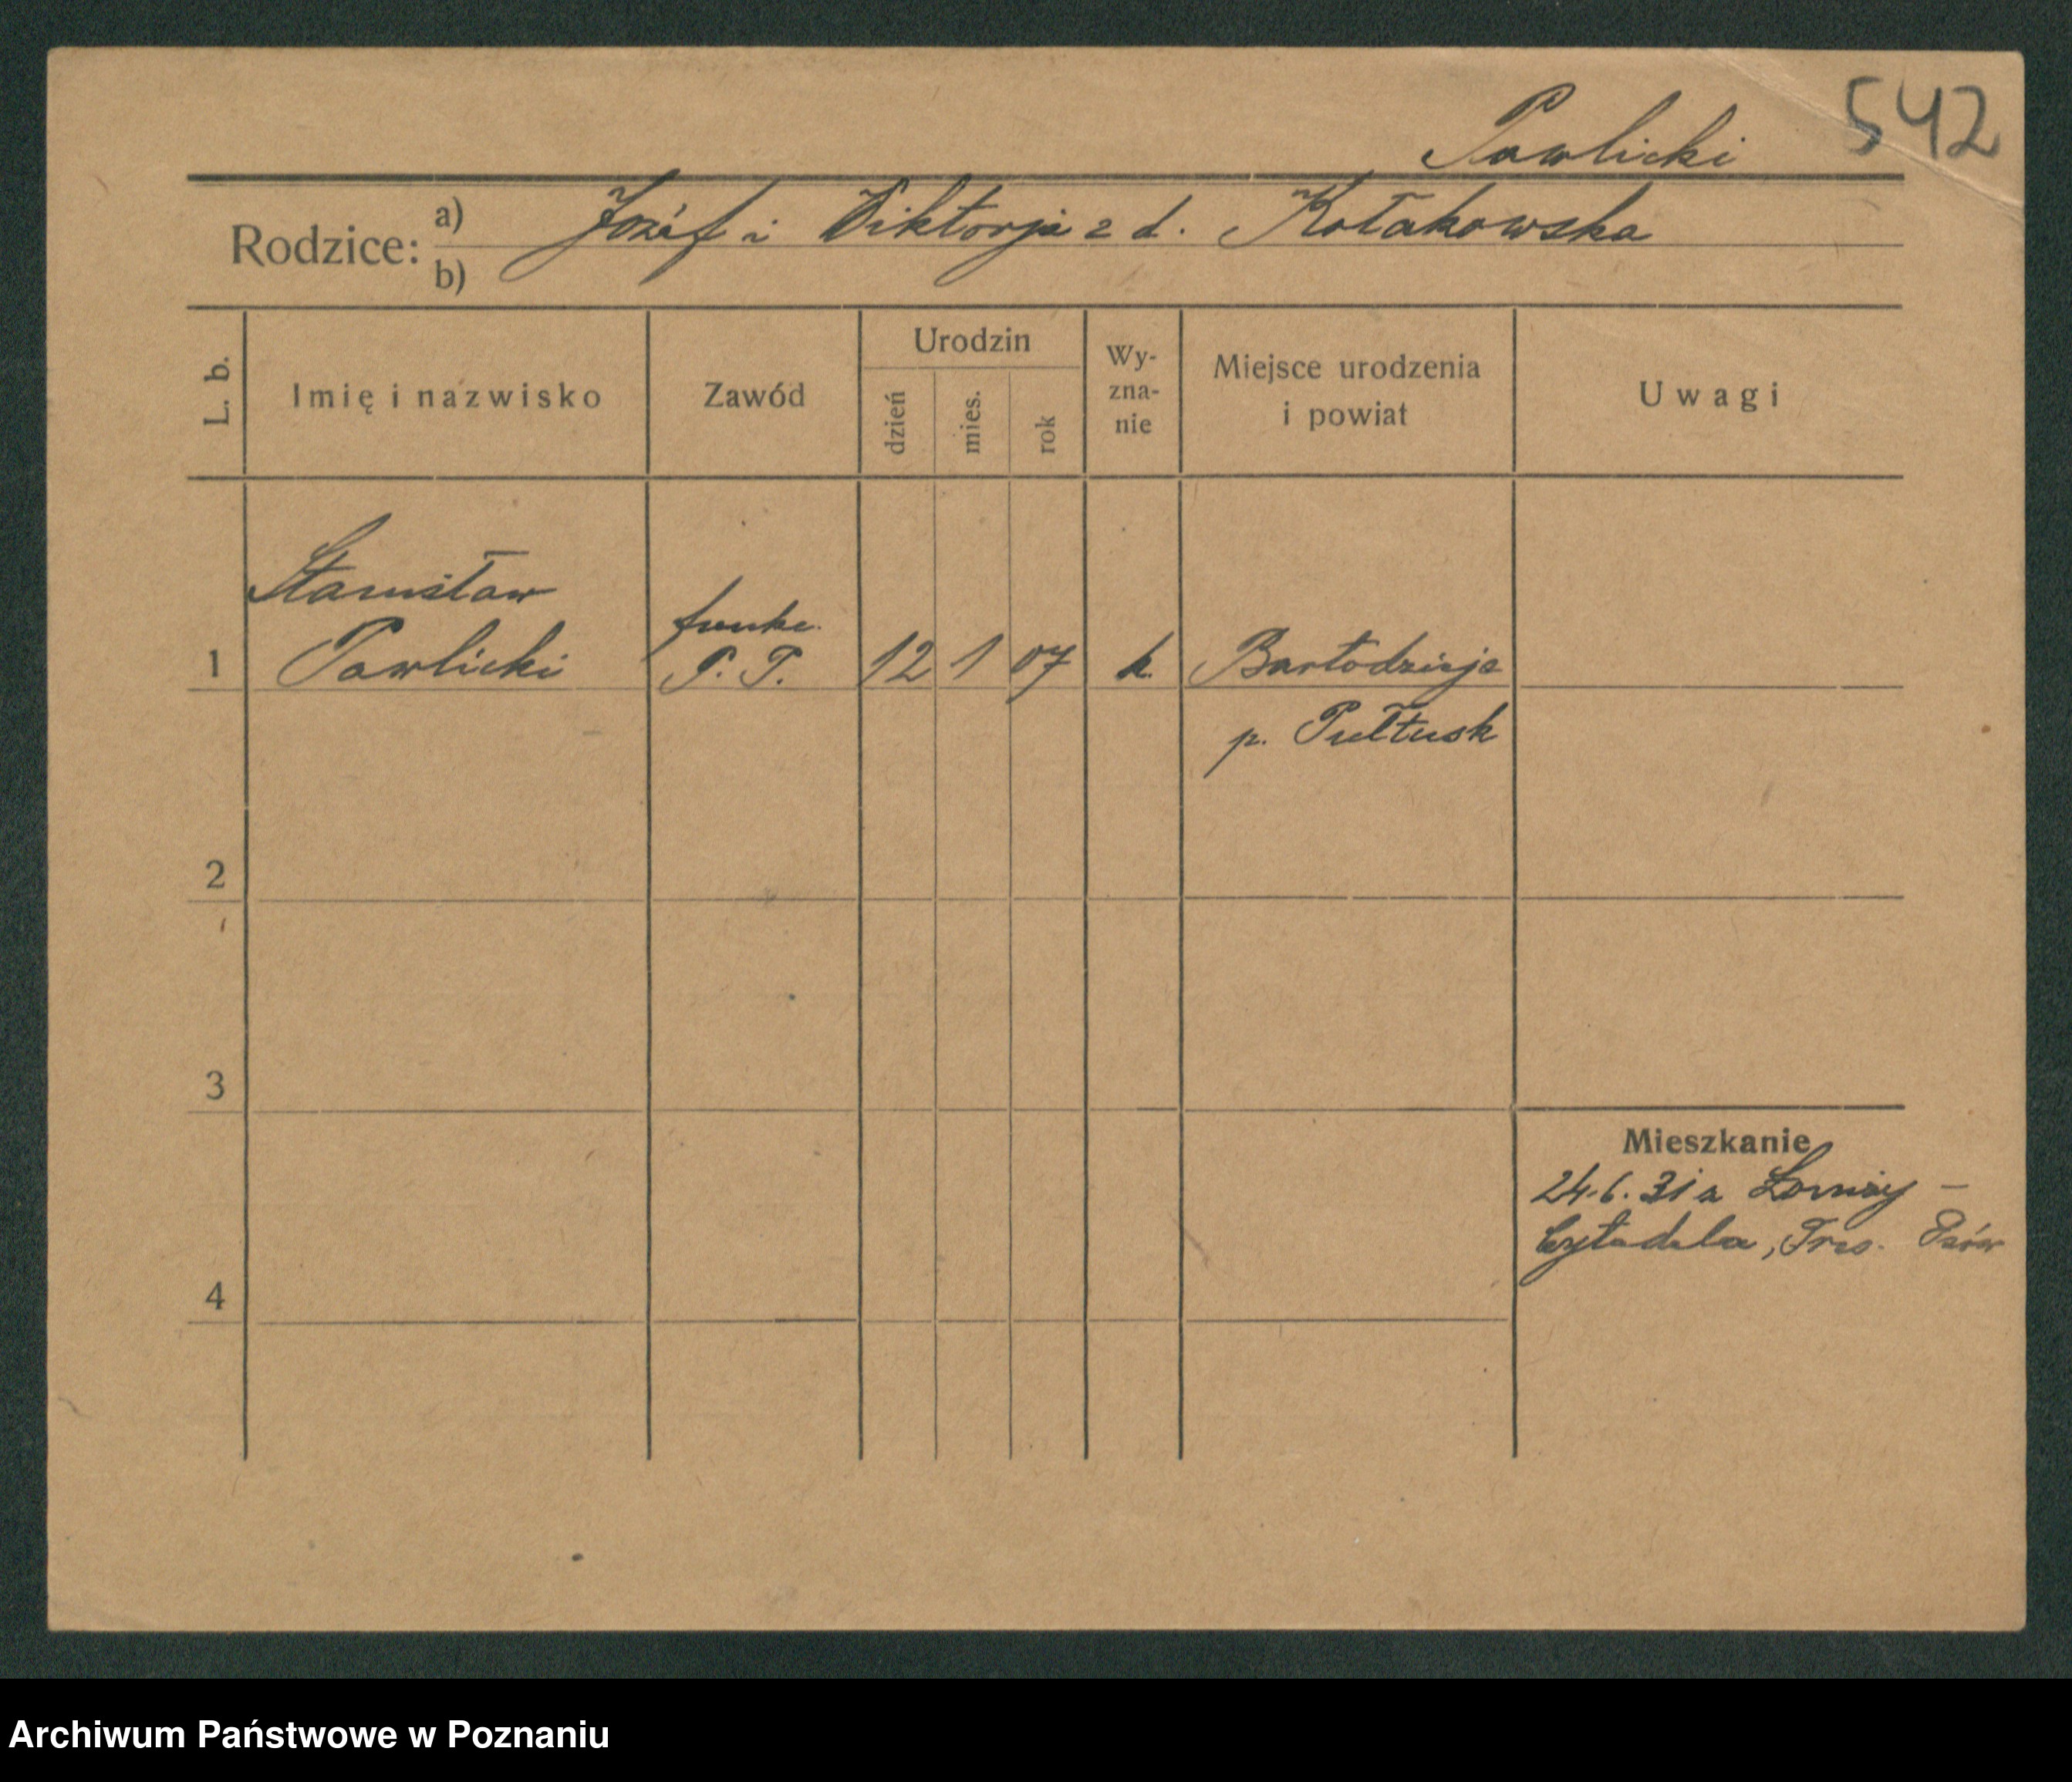 542
Pawlicki
Rodzice: a) Józef i Wiktorja z d. Kołakowska
b)
L. b.
Imię i nazwisko
Zawód
Urodzin
dzień
mies.
rok
Wy-
zna-
nie
Miejsce urodzenia
i powiat
Uwagi
Stanisław
funkc.
1 Pawlicki P. P. 12 1 07 k. Bartodzieje
p. Pułtusk
2
3
4
Mieszkanie
24.6.31 z Łomży –
Cytadela, Tres. Psów
Archiwum Państwowe w Poznaniu